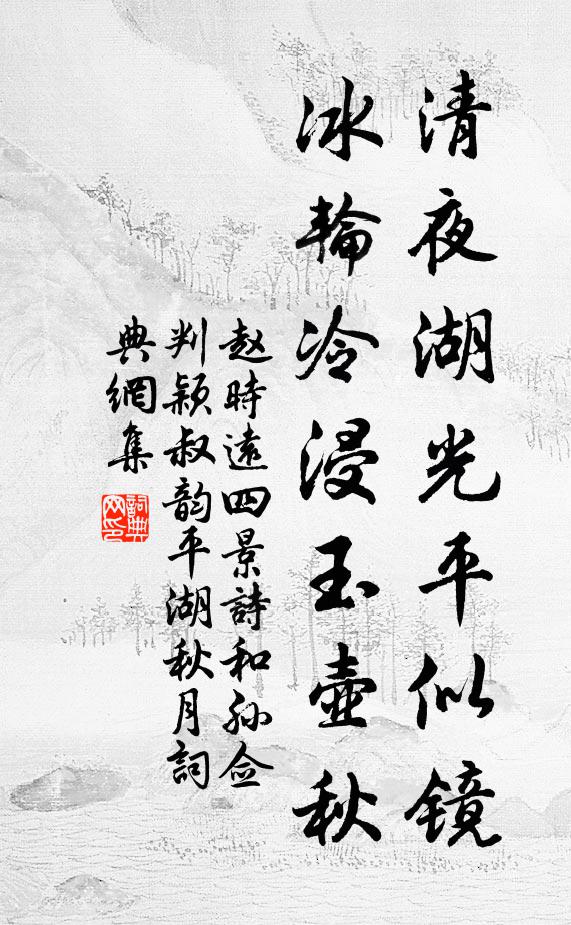 清夜湖光平似镜
冰輪冷浸玉壶秋
赵時遠四景詩和孙佥
判颖叔韵平湖秋月詞
典網集
詞典
网印